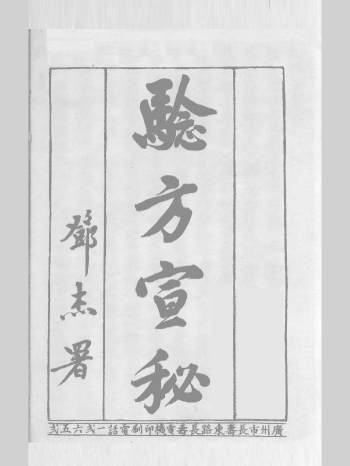 騐方宣秘
鄧杰署
廣州市長壽東路長壽電機印刷電話一弍六五弍